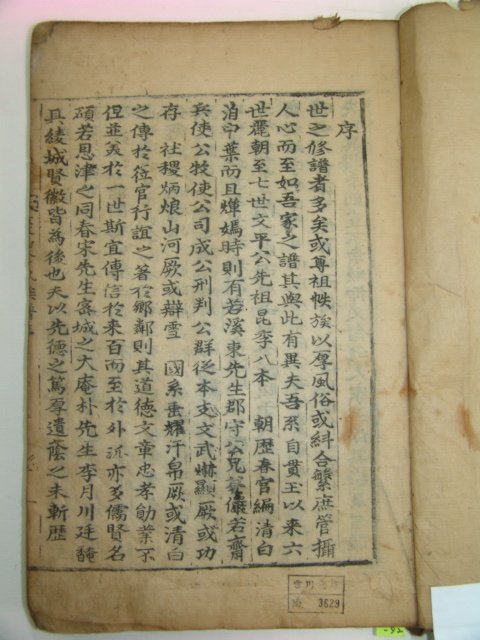 序
世之修譜者多矣或尊祖收族以厚風俗或糾合繁庶管攝
人心而至如吾家之譜其與此有異夫吾系自貫玉以來六
世麗朝至七世文平公先祖昆季八本 朝歷春官編清白
泊中葉而且燁爀時則有若溪東先生郡守公兄 儼若齋
兵使公牧使公司成公刑判公群從本支文武爀顯厥或功
存 社稷炳烺山河厥或辯雪 國系垂耀汗帛厥或清白
之傳於位官行誼之著於鄉鄰則其道德文章忠孝勛業不
但並美於一世斯宜傳信於來百而至於外派亦多儒賢名
碩若恩津之同春宋先生密城之大庵朴先生李月川廷馣
具綾城賢徽皆為後也夫以先德之篤厚遺蔭之未斬歷
3629
-92